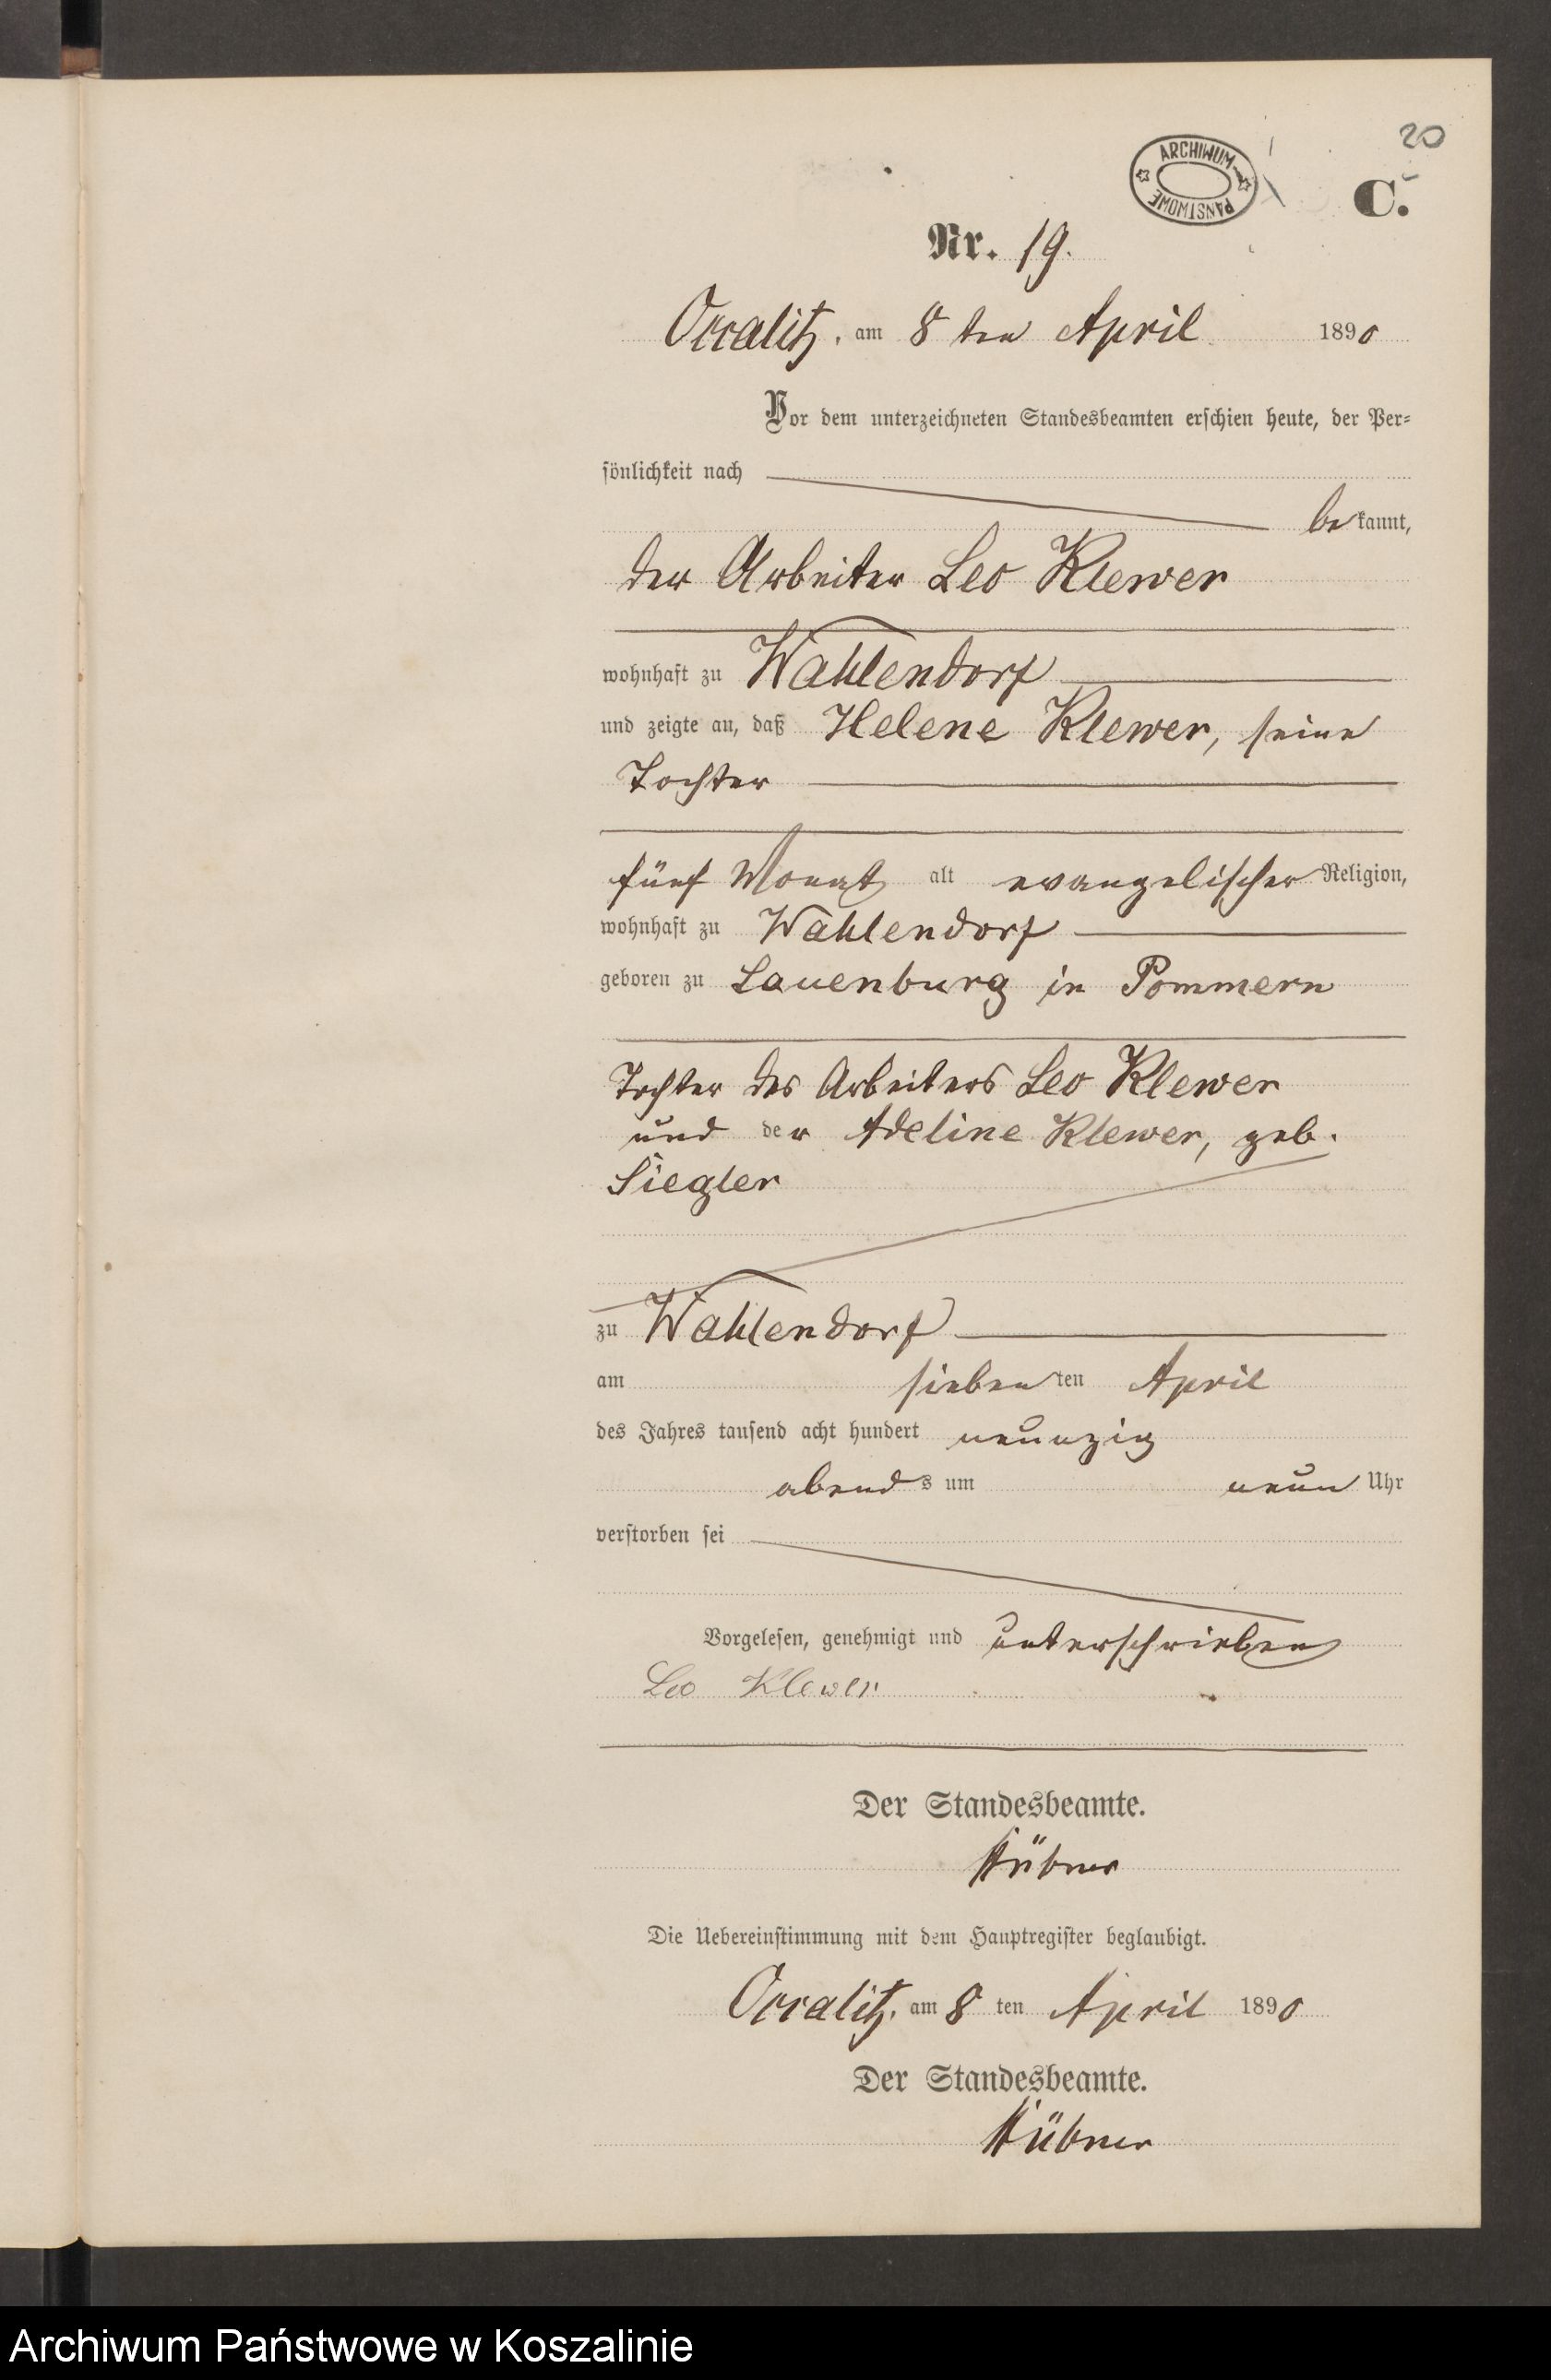 20
ARCHIWUM
PAŃSTWOWE
C.
Nr. 19.
Occalitz, am 8 ten April 1890
Vor dem unterzeichneten Standesbeamten erschien heute, der Per-
sönlichkeit nach
bekannt,
der Arbeiter Leo Klewer
wohnhaft zu Wahlendorf
und zeigte an, daß Helene Klewer, seine
Tochter
fünf Monat alt evangelischer Religion,
wohnhaft zu Wahlendorf
geboren zu Lauenburg in Pommern
Tochter des Arbeiters Leo Klewer
und der Adeline Klewer, geb.
Siegler
zu Wahlendorf
am siebenten April
des Jahres tausend acht hundert neunzig
abends um neun Uhr
verstorben sei
Vorgelesen, genehmigt und unterschrieben
Leo Klewer
Der Standesbeamte.
Hübner
Die Uebereinstimmung mit dem Hauptregister beglaubigt.
Occalitz, am 8 ten April 1890
Der Standesbeamte.
Hübner
Archiwum Państwowe w Koszalinie